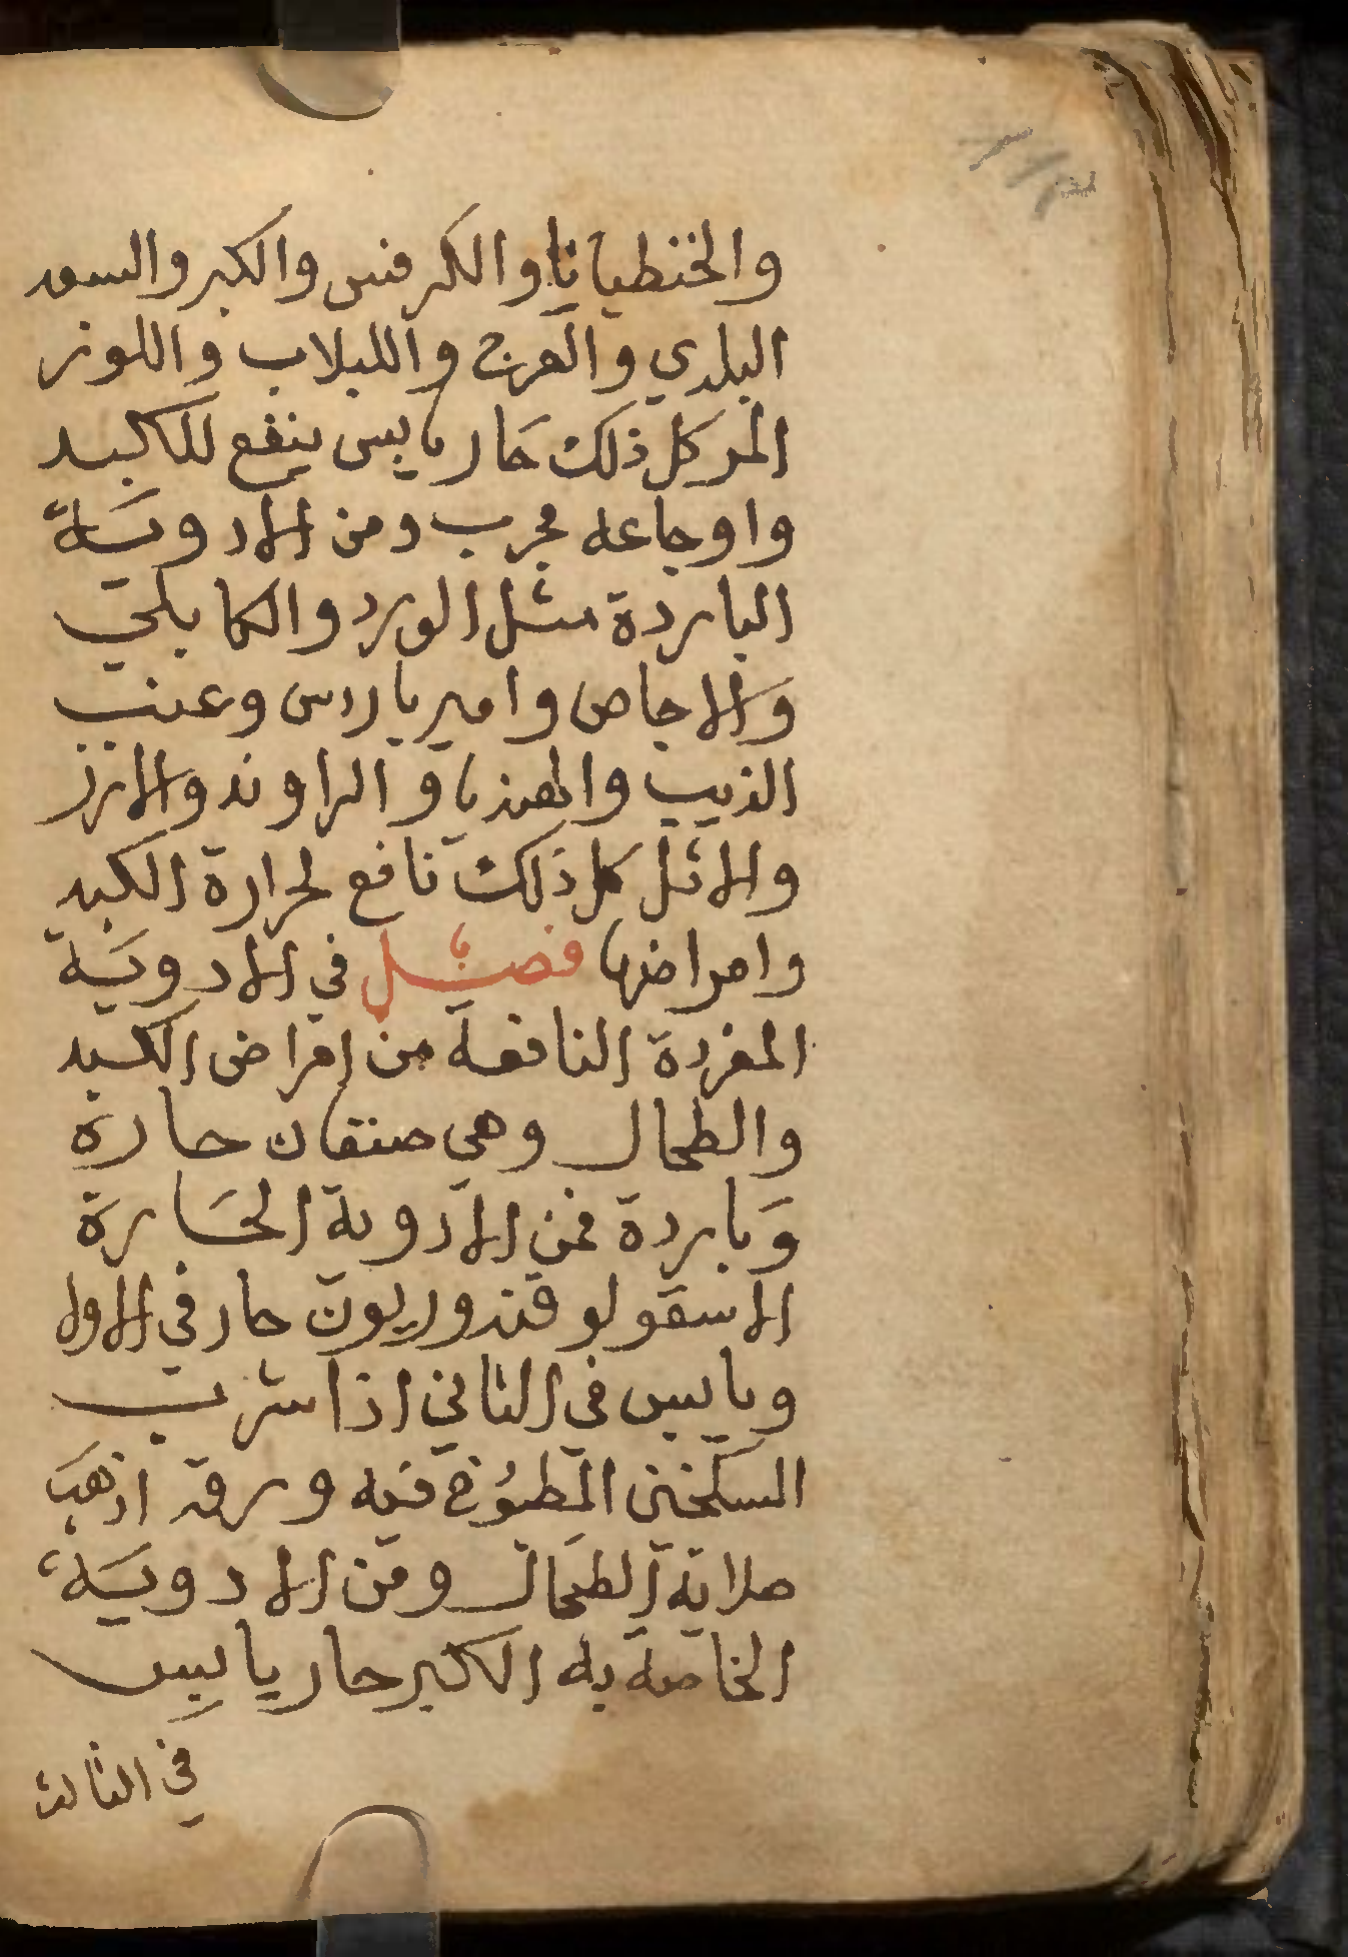 والخنطيانا والكرفس والكبر والسعد
البلدي والعرج واللبلاب واللوز
المر كل ذلك حار يابس ينفع للكبد
واوجاعه مجرب ومن الادوية
الباردة مثل الورد والكابلي
والاجاص وامير باردس وعنب
الذيب والهنديا والراوند والارز
والاثل كل ذلك نافع لحرارة الكبد
وامراضها فصل في الادوية
المفردة النافعة من امراض الكبد
والطحال وهي صنفان حارة
وباردة فمن الادوية الحارة
الاسقولوقندوريون حار في الاول
ويابس في الثاني اذا شرب
السكنجبين المطبوخ فيه ورقه اذهب
صلابة الطحال ومن الادوية
الخاصة به الكبر حار يابس
في الثالث